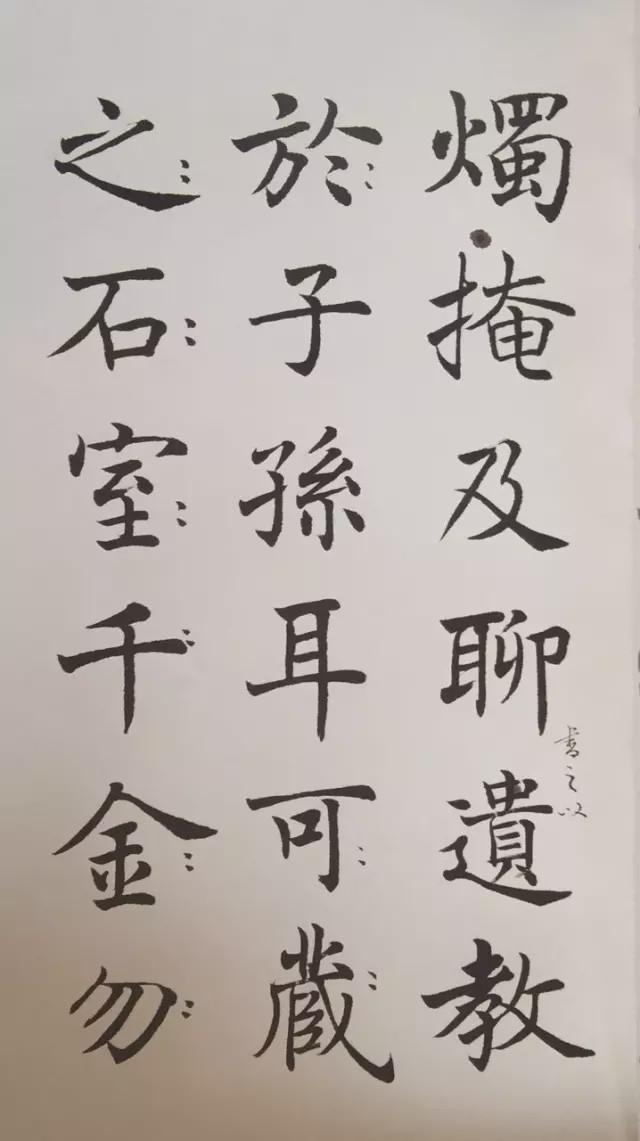 燭掩及聊遺教
書之以
於子孫耳可藏
之石室千金勿